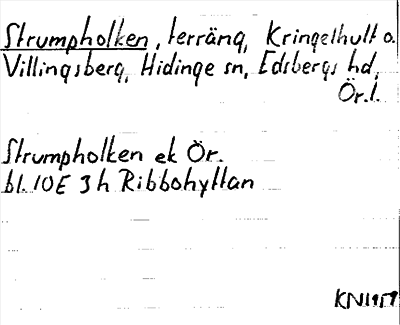 Strumpholken, terräng, Kringelhult o.
Villingsberg, Hidinge sn, Edsbergs hd,
Ör.l.
Strumpholken ek Ör.
bl. 10E 3h Ribbohyttan
KN1959